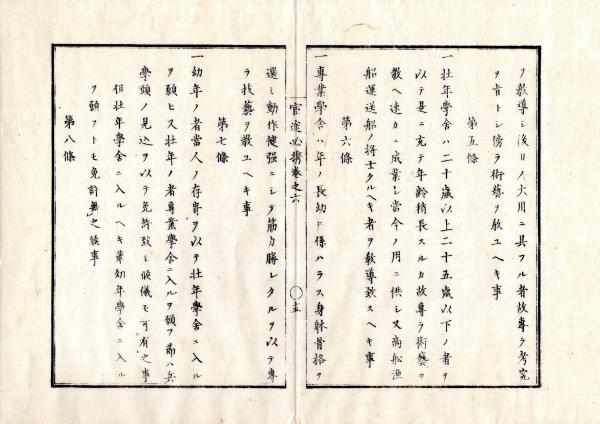 ヲ教導シ後日ノ大用ニ具フル者故專ラ考究
ヲ旨トシ傍ラ術藝ヲ教ユヘキ事
第五條
一壯年學舍ハ二十歳以上二十五歳以下ノ者ヲ
以テ是ニ充テ年齢稍長スルカ故專ラ術藝ヲ
教ヘ速カニ成業シ當今ノ用ニ供シ又商船漁
船運送船ノ將士タルヘキ者ヲ教導致スヘキ事
第六條
一專業學舍ハ年ノ長幼ニ係ハラス身躰骨格ヲ
官途必携卷之六
十五
選ミ動作健强ニシテ筋力勝レタルヲ以テ專
ラ技藝ヲ教ユヘキ事
第七條
一幼年ノ者當人ノ存寄ヲ以テ壯年學舍ニ入ル
ヲ願ヒ又壯年ノ者專業學舍ニ入ルヲ願フ節ハ兵
學頭ノ見込ヲ以テ免許致シ候儀モ可有之事
但壯年學舍ニ入ルヘキ輩幼年學舍ニ入ル
ヲ願フトモ免許無之候事
第八條